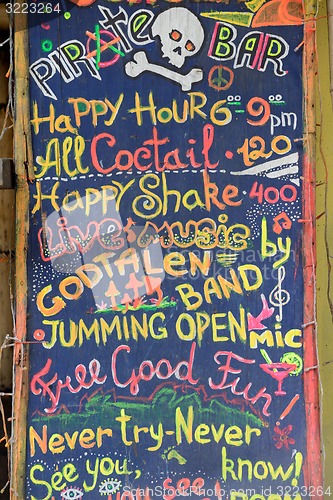 PIRATE BAR
Happy Hour 6-9 pm
All Coctail · 120
Happy Shake · 400
Live Music by
GODTALEN BAND
JUMMING OPEN MIC
Feel Good Fun!
Never try-Never
See you, know!
2103274
2103274
2103274
2103274